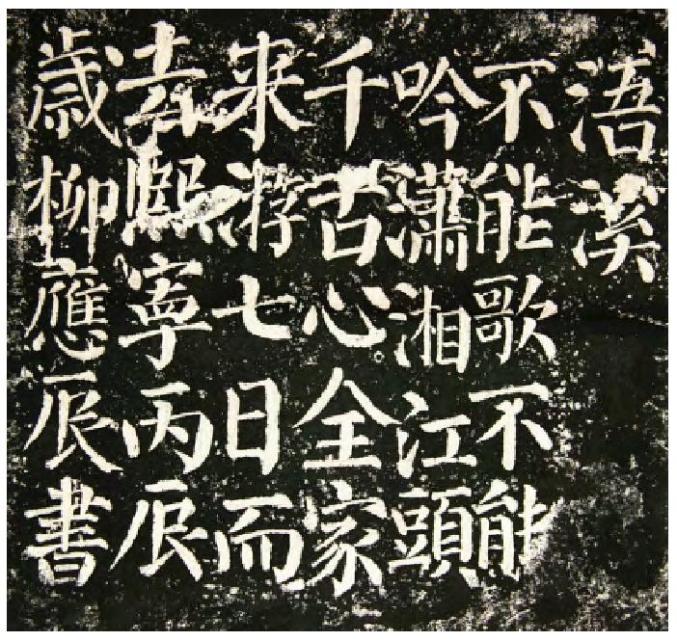 浯溪
不能歌不能
吟瀟湘江頭
千古心全家
来游七日而
去熙寧丙辰
歲柳應辰書